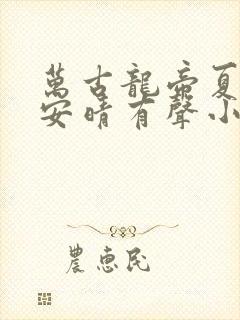 萬古龍帝夏
安晴有聲小
農惠民